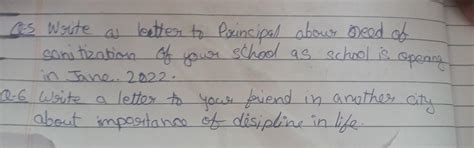 Q.5 Write a letter to Principal about need of
sanitization of your school as school is opening
in June. 2022.
Q.6 Write a letter to your friend in another city
about importance of disipline in life.